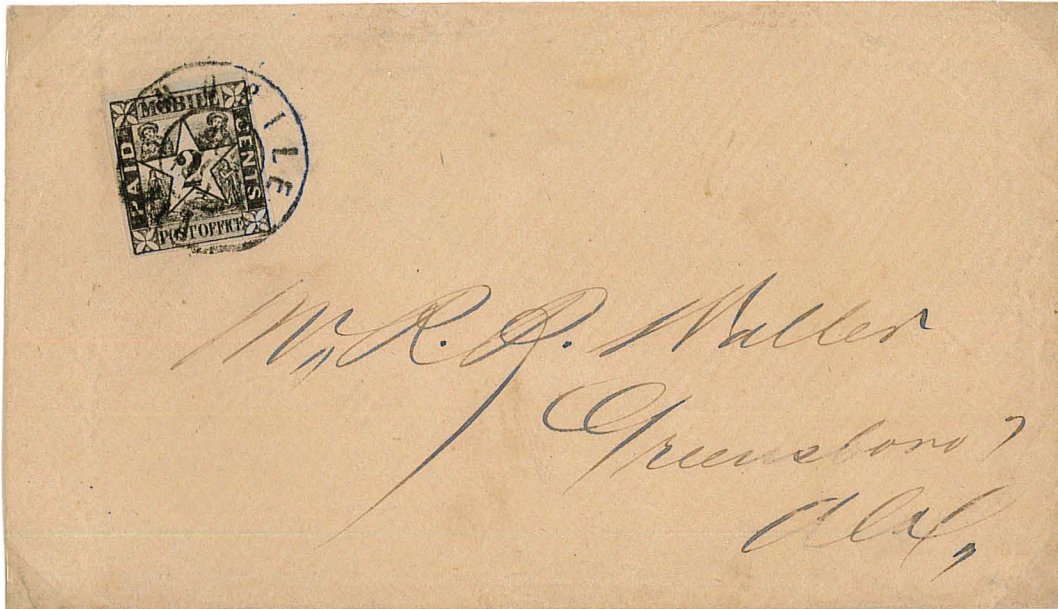 MOBILE
PAID
2
CENTS
POST OFFICE
BILE
Mr, R. R. Waller
Greensboro
Ala,